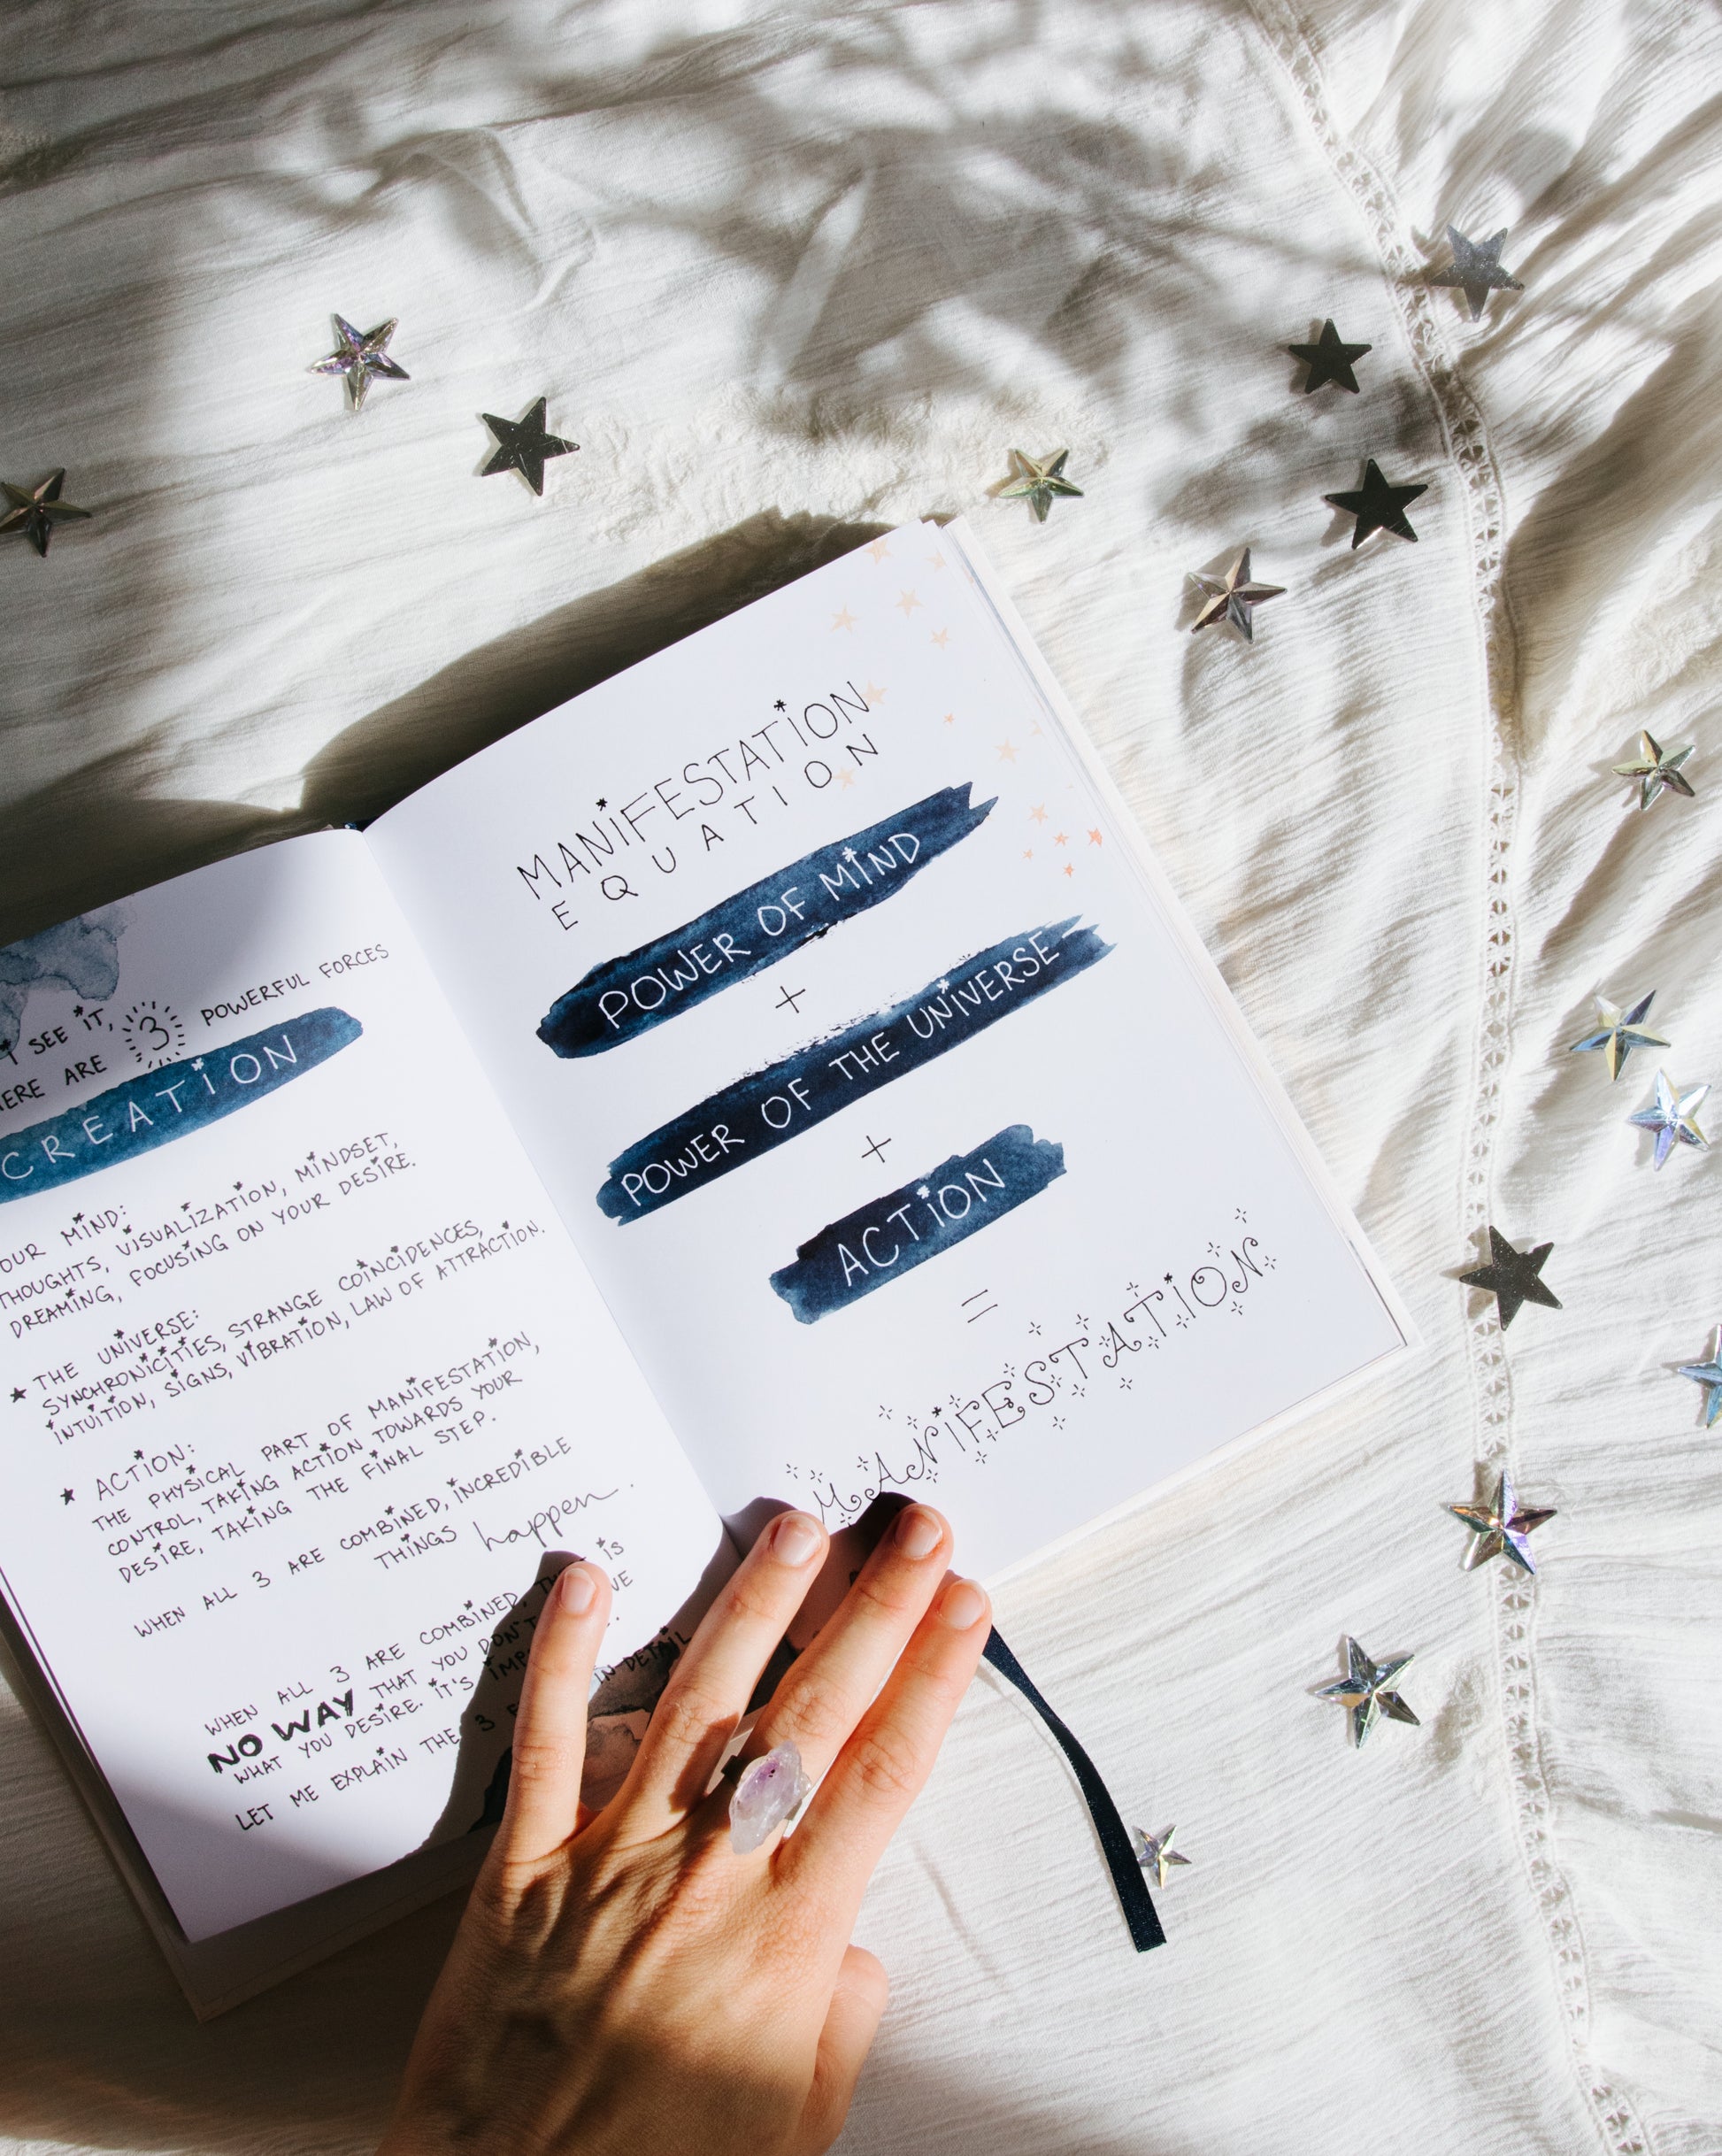 I SEE IT,
THERE ARE 3 POWERFUL FORCES
CREATION
YOUR MIND:
THOUGHTS, VISUALIZATION, MINDSET,
DREAMING, FOCUSING ON YOUR DESIRE.
THE UNIVERSE:
SYNCHRONICITIES, STRANGE COINCIDENCES,
INTUITION, SIGNS, VIBRATION, LAW OF ATTRACTION.
ACTION:
THE PHYSICAL PART OF MANIFESTATION,
CONTROL, TAKING ACTION TOWARDS YOUR
DESIRE, TAKING THE FINAL STEP.
WHEN ALL 3 ARE COMBINED, INCREDIBLE
THINGS happen.
WHEN ALL 3 ARE COMBINED, IS
NO WAY THAT YOU DON'T
WHAT YOU DESIRE. IT'S
LET ME EXPLAIN THE 3 IN DETAIL
MANIFESTATION
EQUATION
POWER OF MIND
+
POWER OF THE UNIVERSE
+
ACTION
=
MANIFESTATION